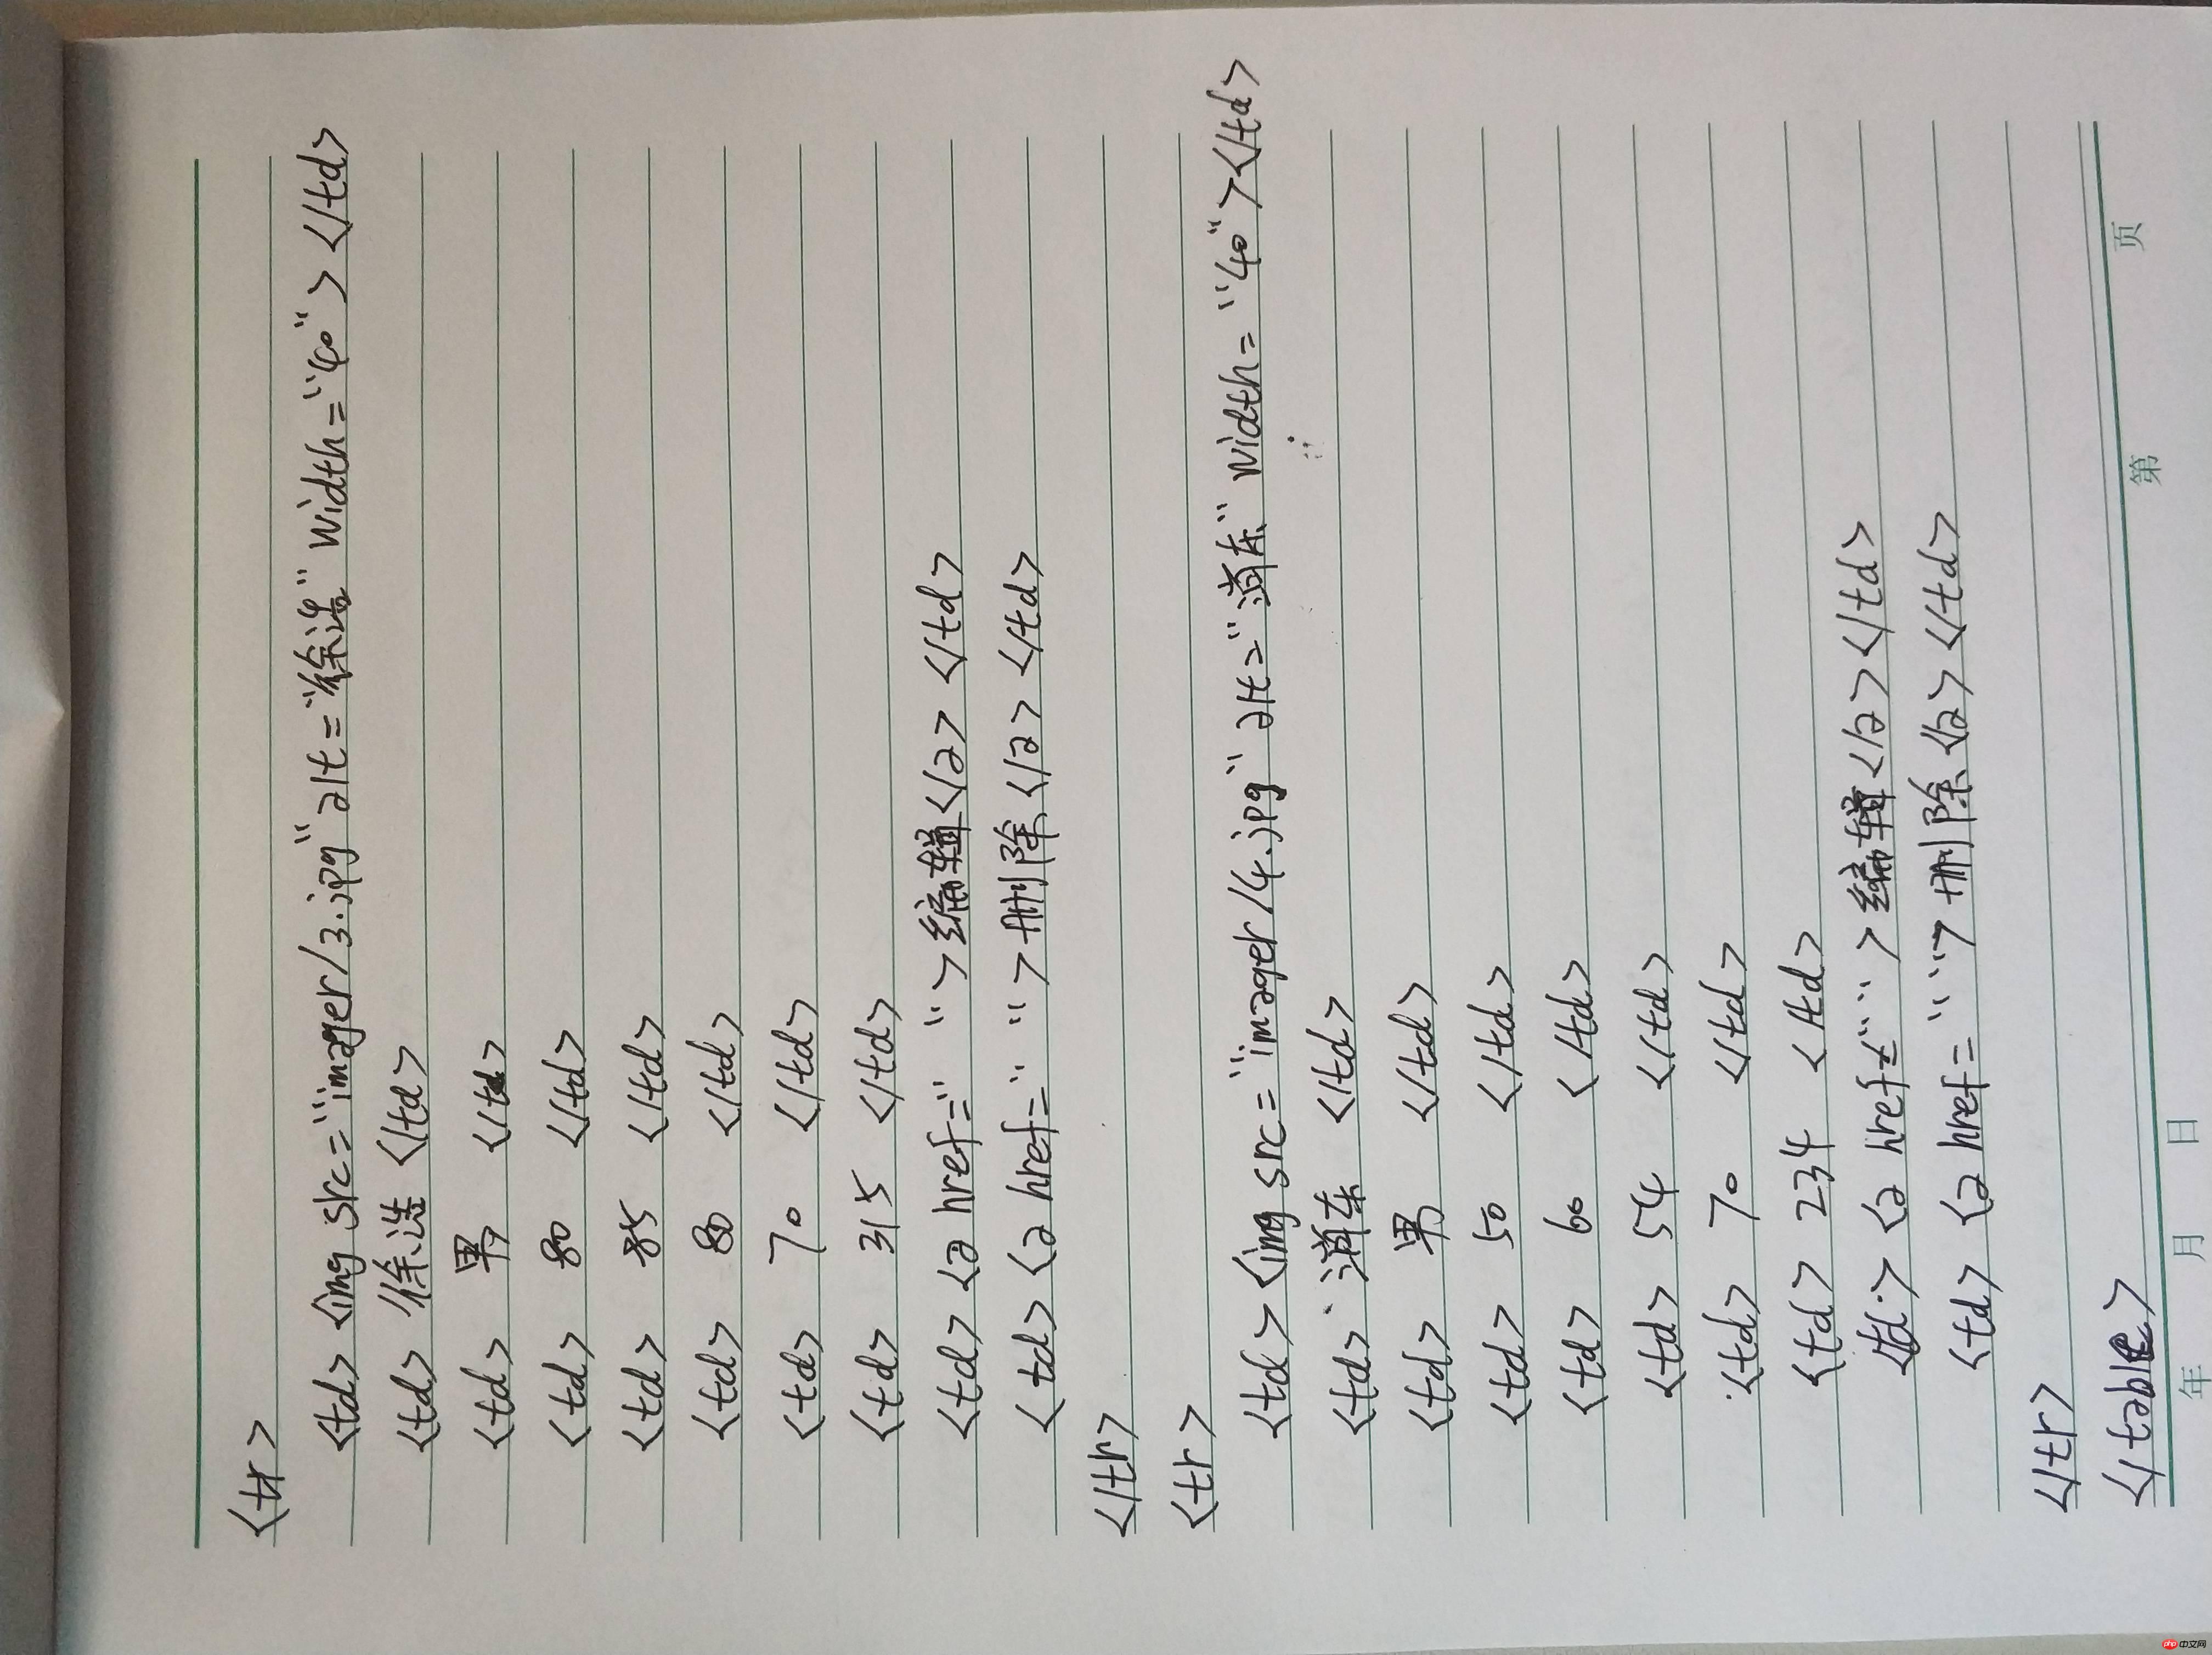 <tr>
<td> <img src="imager/3.jpg" alt="徐浩" width="40"> </td>
<td> 徐浩 </td>
<td> 男 </td>
<td> 80 </td>
<td> 85 </td>
<td> 80 </td>
<td> 70 </td>
<td> 315 </td>
<td> <a href=" "> 编辑 </a> </td>
<td> <a href=" "> 删除 </a> </td>
</tr>
<tr>
<td> <img src="imager/4.jpg" alt="消东" width="40"></td>
<td> 消东 </td>
<td> 男 </td>
<td> 50 </td>
<td> 60 </td>
<td> 54 </td>
<td> 70 </td>
<td> 234 </td>
<td> <a href=" "> 编辑 </a></td>
<td> <a href=" "> 删除 </a></td>
</tr>
</table>
年 月 日 第 页
php 中文网